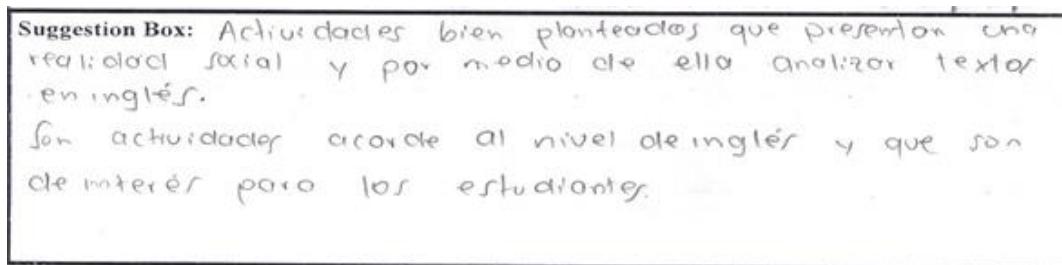 Suggestion Box: Actividades bien planteadas que presentan una
realidad social y por medio de ella analizar textos
en inglés.
Son actividades acorde al nivel de inglés y que son
de interés para los estudiantes.